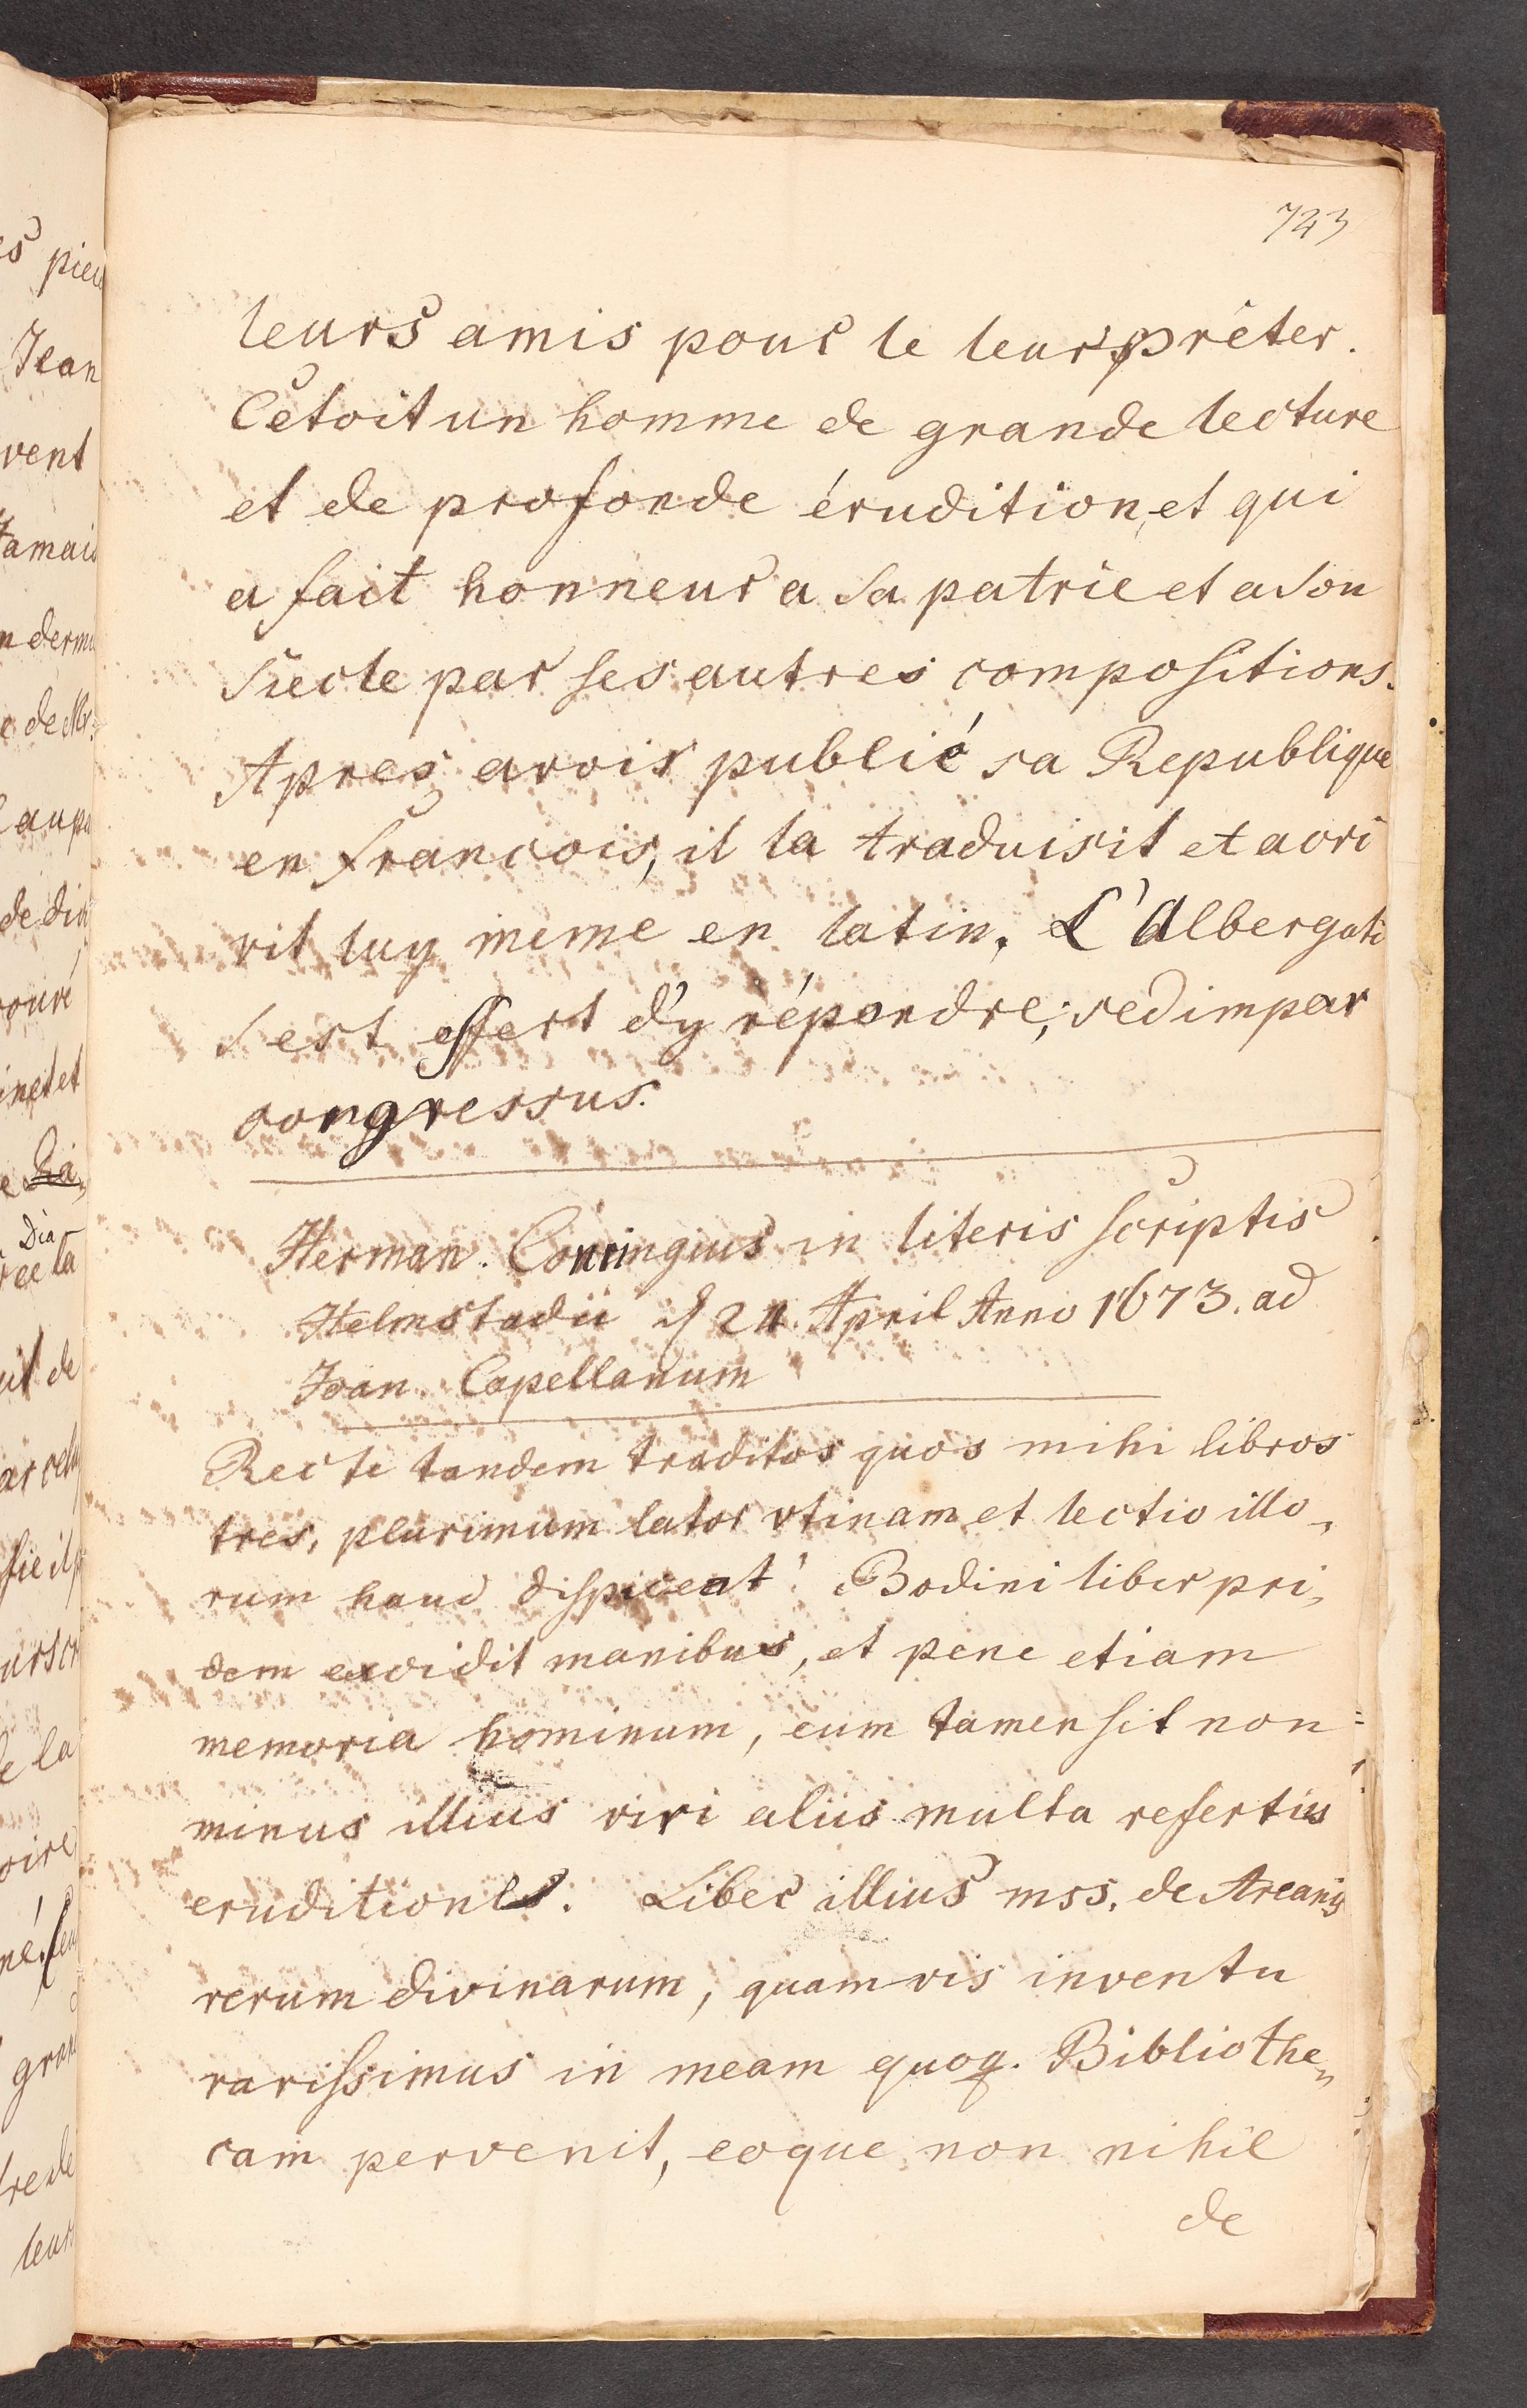 723
leurs amis pour le leur prêter.
Cetoit un homme de grande lecture
et de profonde érudition, et qui
a fait honneur a sa patrie et a son
siecle par ses autres compositions.
Apres avoir publié sa Republique
en francois, il la traduisit et acri
vit luy meme en latin. L'Albergati
s est offert d'y répondre; sed impar
congressus.
Herman. Conringius in literis scriptis
Helmstadii d 24 April Anno 1673. ad
Joan. Capellanum
Recte tandem traditos quos mihi libros
tres, plurimum lator vtinam et lectio illo-
rum haud dispiceat! Bodini liber pri-
dem excidit manibus, et pene etiam
memoria hominum, cum tamen sit non=
minus illius viri aliis multa refertus
eruditione. Liber illius mss. de Arcanis
rerum divinarum, quamvis inventu
rarissimus in meam quoq. Bibliothe-
cam pervenit, eoque non nihil
de
es piec
Jean
vent
Jamais
n derni
e de Mr.
aupa
de din
ouvé
inet et
Dia
la
it de
sie il p
urs cr
e la
oire
né
gran
re de
leurs